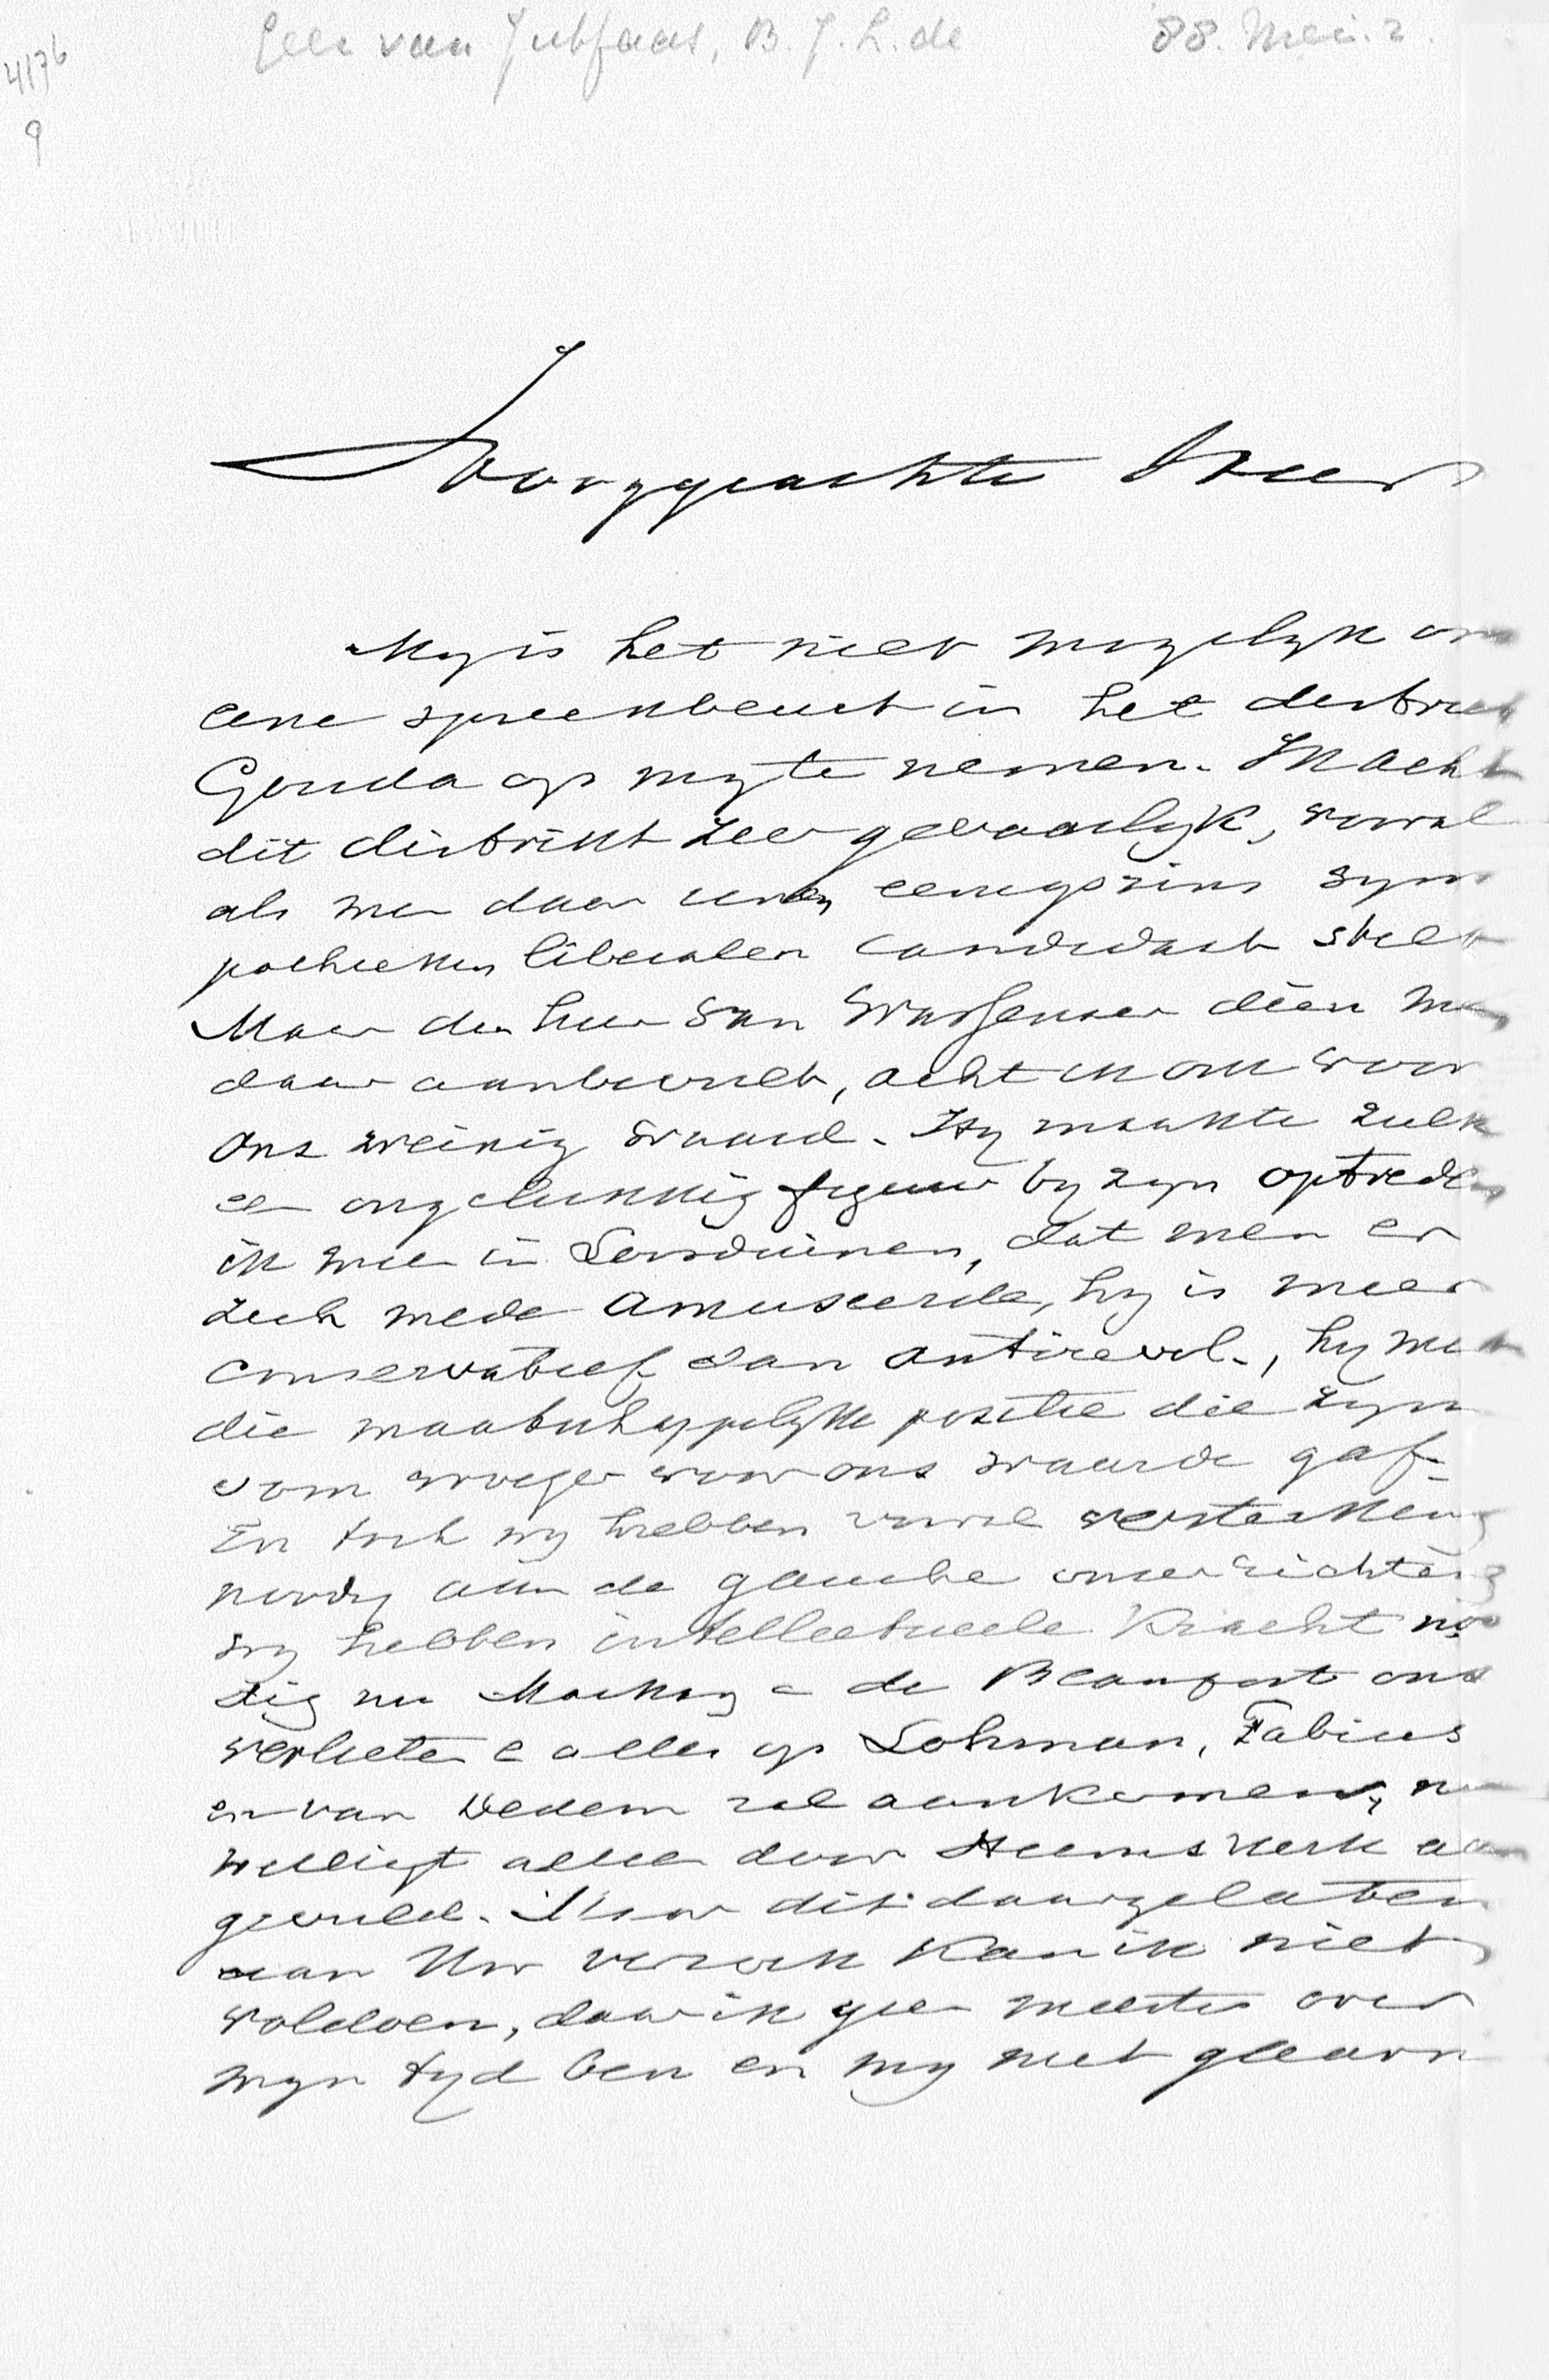 4176
9
Geer van Jutfaas, B.J.L. de '88. Mei. 2.
Hooggeachte Heer
My is het niet mogelyk om
eene spreekbeurt in het district
Gouda op my te nemen. Ik acht
dit distrikt zeer gevaarlyk, vooral
als men daar een eenigszins sym
pathieken liberalen candidaat stelt
Maar den heer van Wassenaer dien men
daar aanbeveelt, acht ik ook voor
ons weinig waard. Hy maakte zulk
een ongelukkig figuur by zyn optreden
in Loosduinen, dat men er
zich mede amuseerde, hy is meer
conservatief dan antirevol., hy mist
die maatschappelyke positie die zyn
oom vroeger voor ons waarde gaf.
En toch wy hebben versterking
noodig aan de gauche onzer richting
wy hebben intellectueele kracht noo
dig nu Mackay en de Beaufort ons
verlieten en alles op Lohman, Fabius
en van Dedem zal aankomen, nu
wellicht alleen door Heemskerk aan
gevuld. Maar dit daargelaten
aan Uw verzoek kan ik niet
voldoen, daar ik geen meester over
myn tyd ben en my niet gaarn